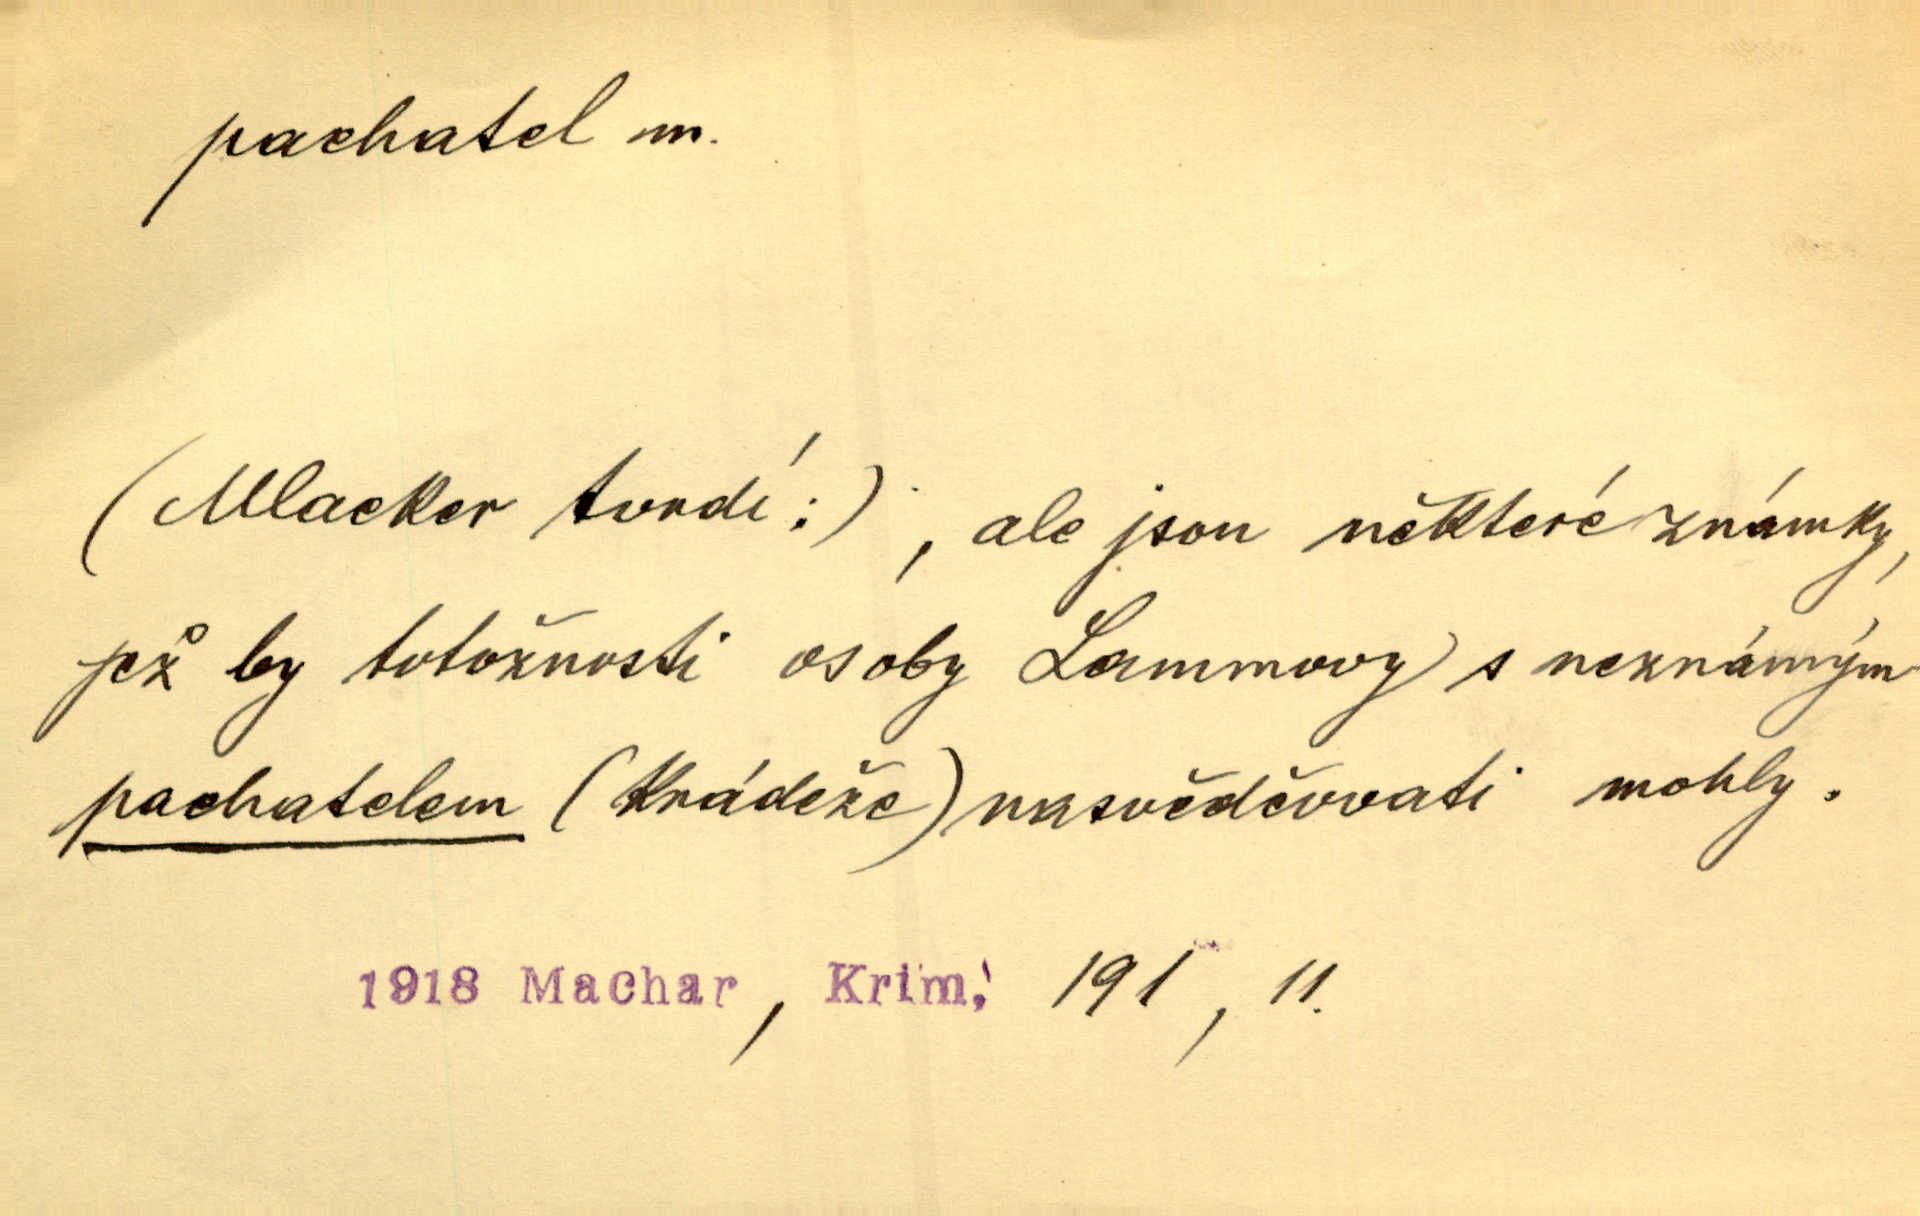 pachatel m.
(Mlacker tvrdí:), ale jsou některé známky,
jež by totožnosti osoby Lammovy s neznámým
pachatelem (krádeže) nasvědčovati mohly.
1918 Machar, Krim. 191, 11.